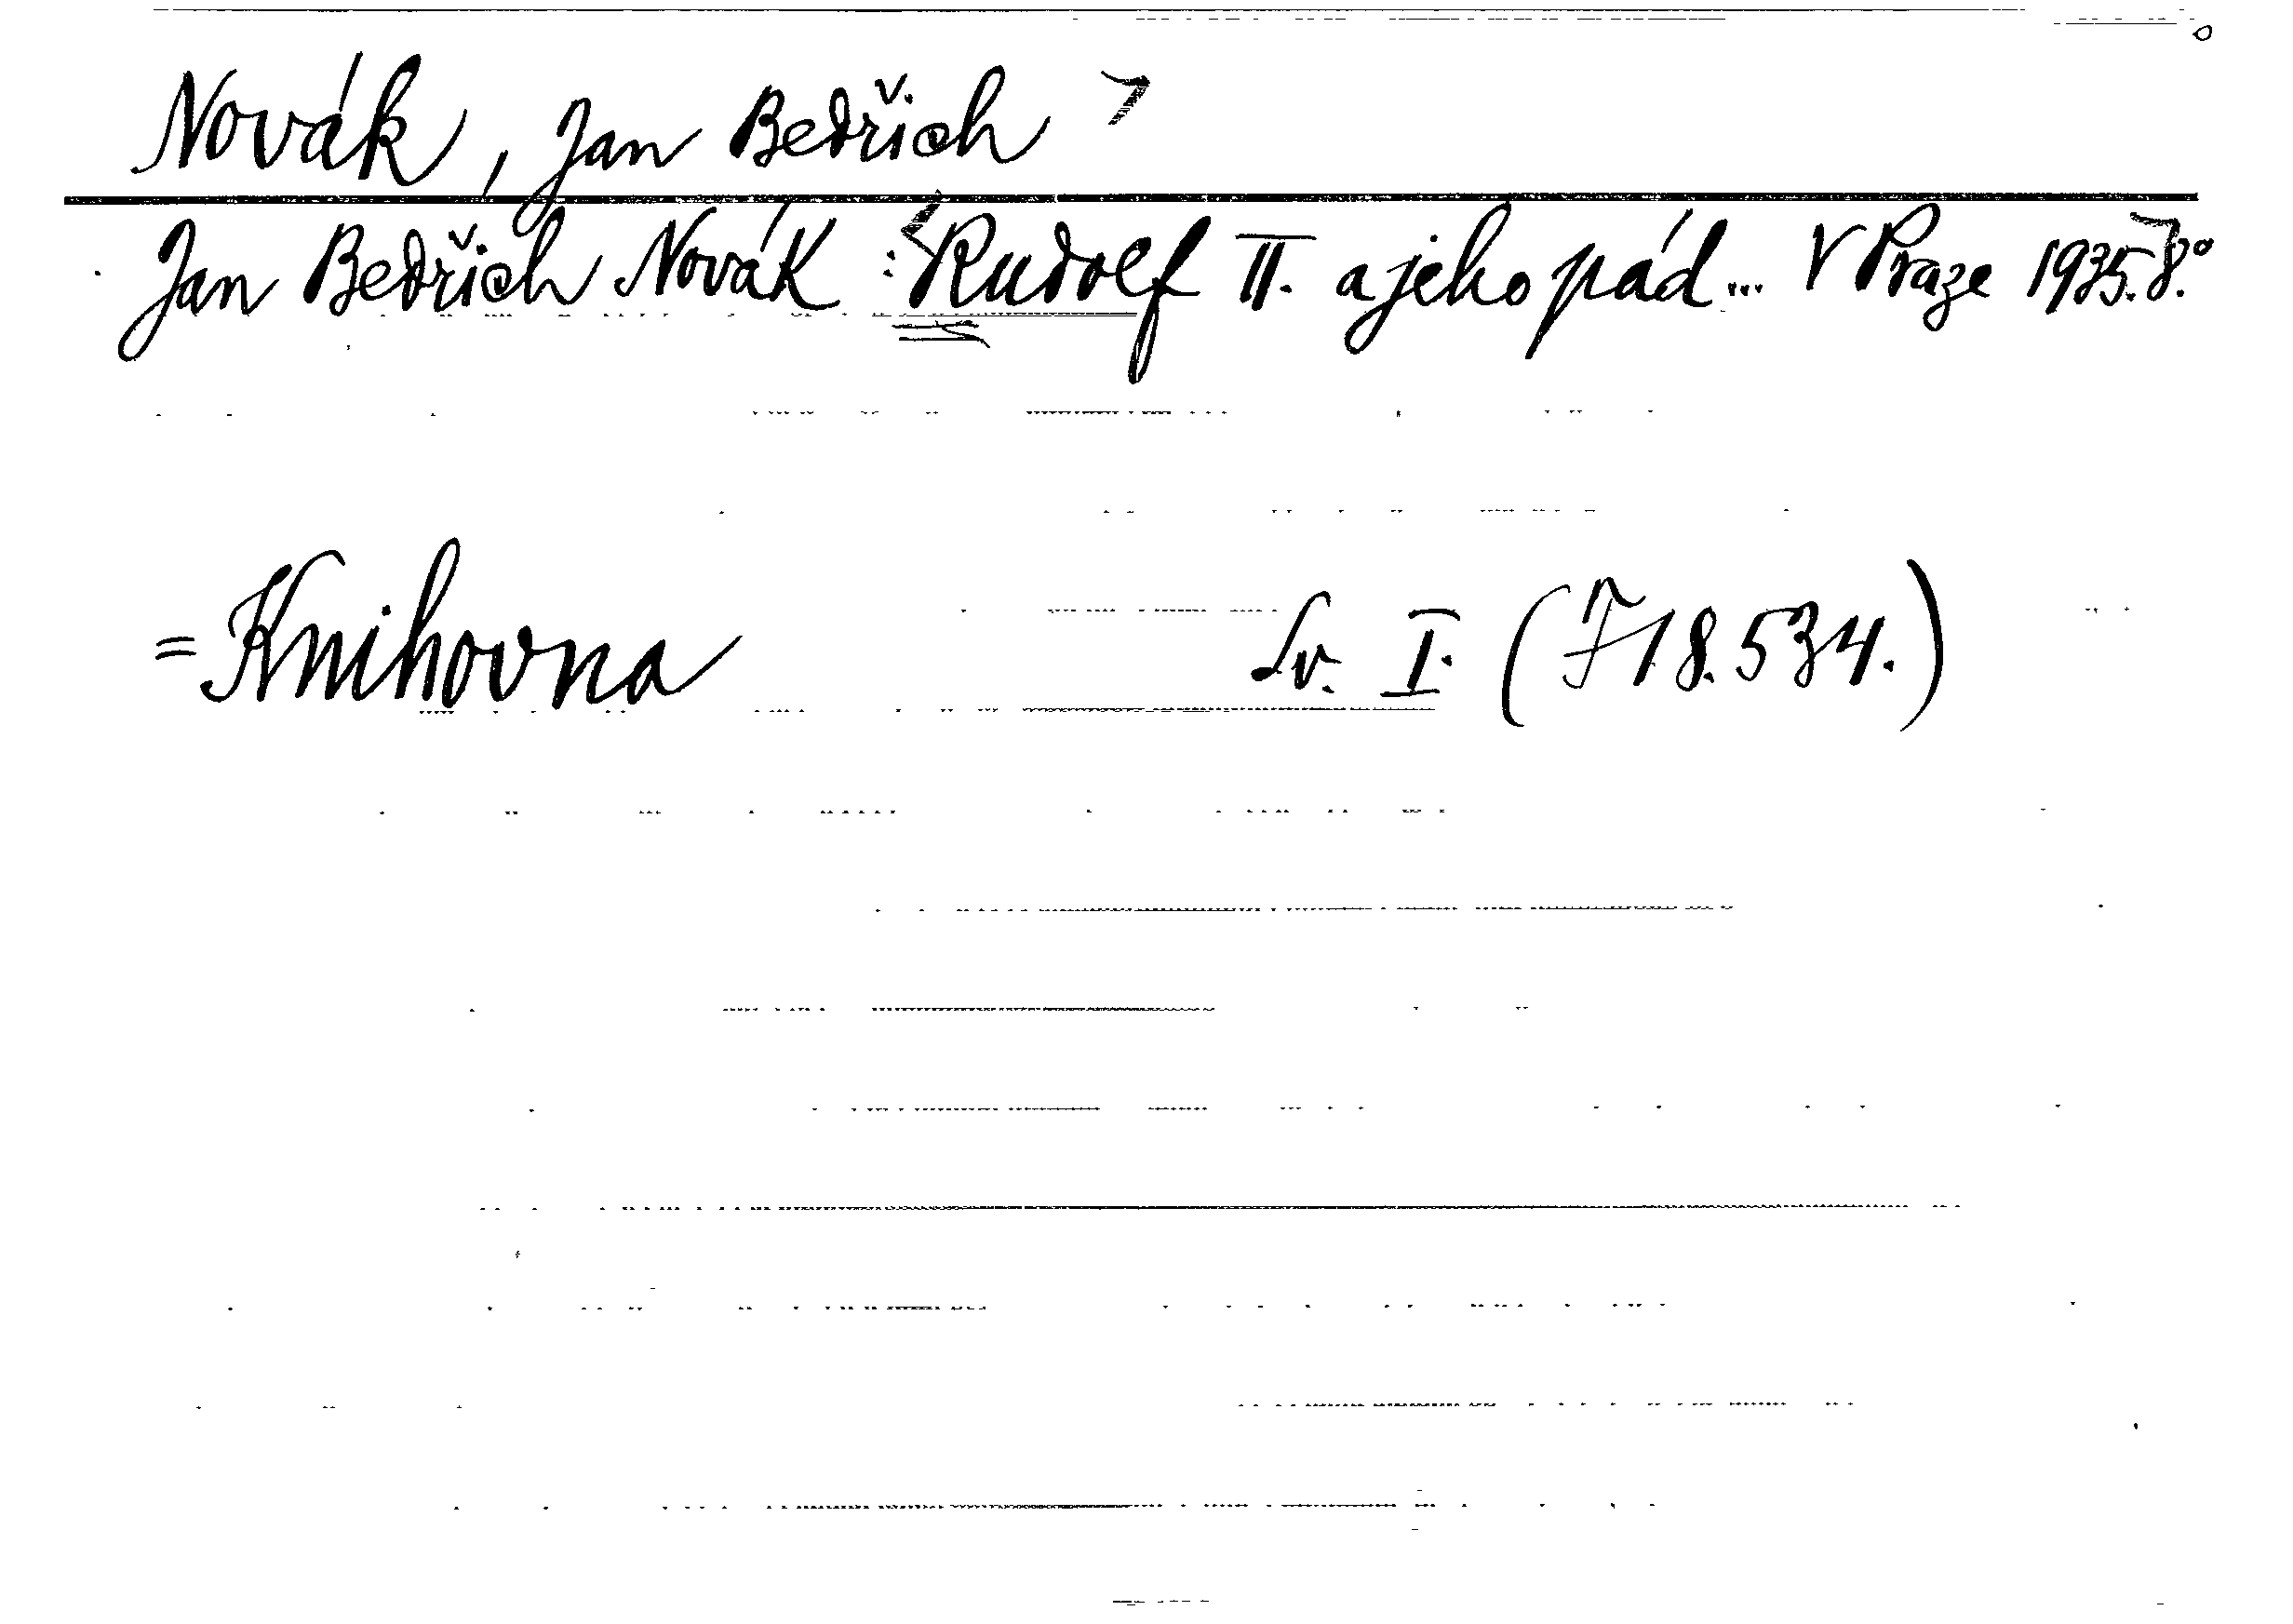 Novák, Jan Bedřich
Jan Bedřich Novák : Rudolf II. a jeho pád... V Praze 1935. 8.°
= Knihovna Sv. I. (F 18.534.)